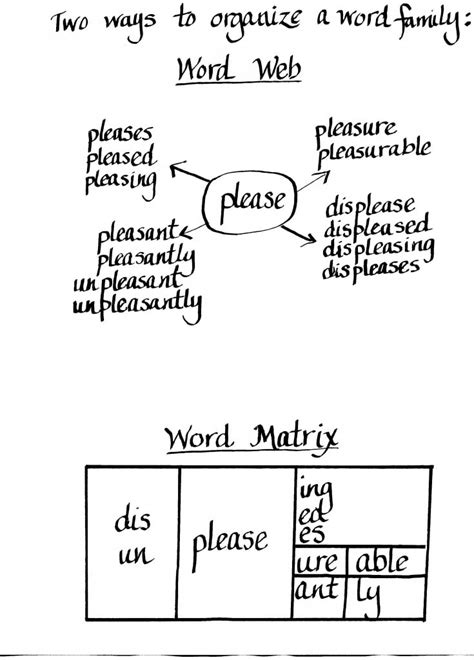 Two ways to organize a word family:
Word Web
pleases
pleased
pleasing
pleasure
pleasurable
please
pleasant
pleasantly
unpleasant
unpleasantly
displease
displeased
displeasing
displeases
Word Matrix
dis
un
please
ing
ed
es
ure able
ant ly